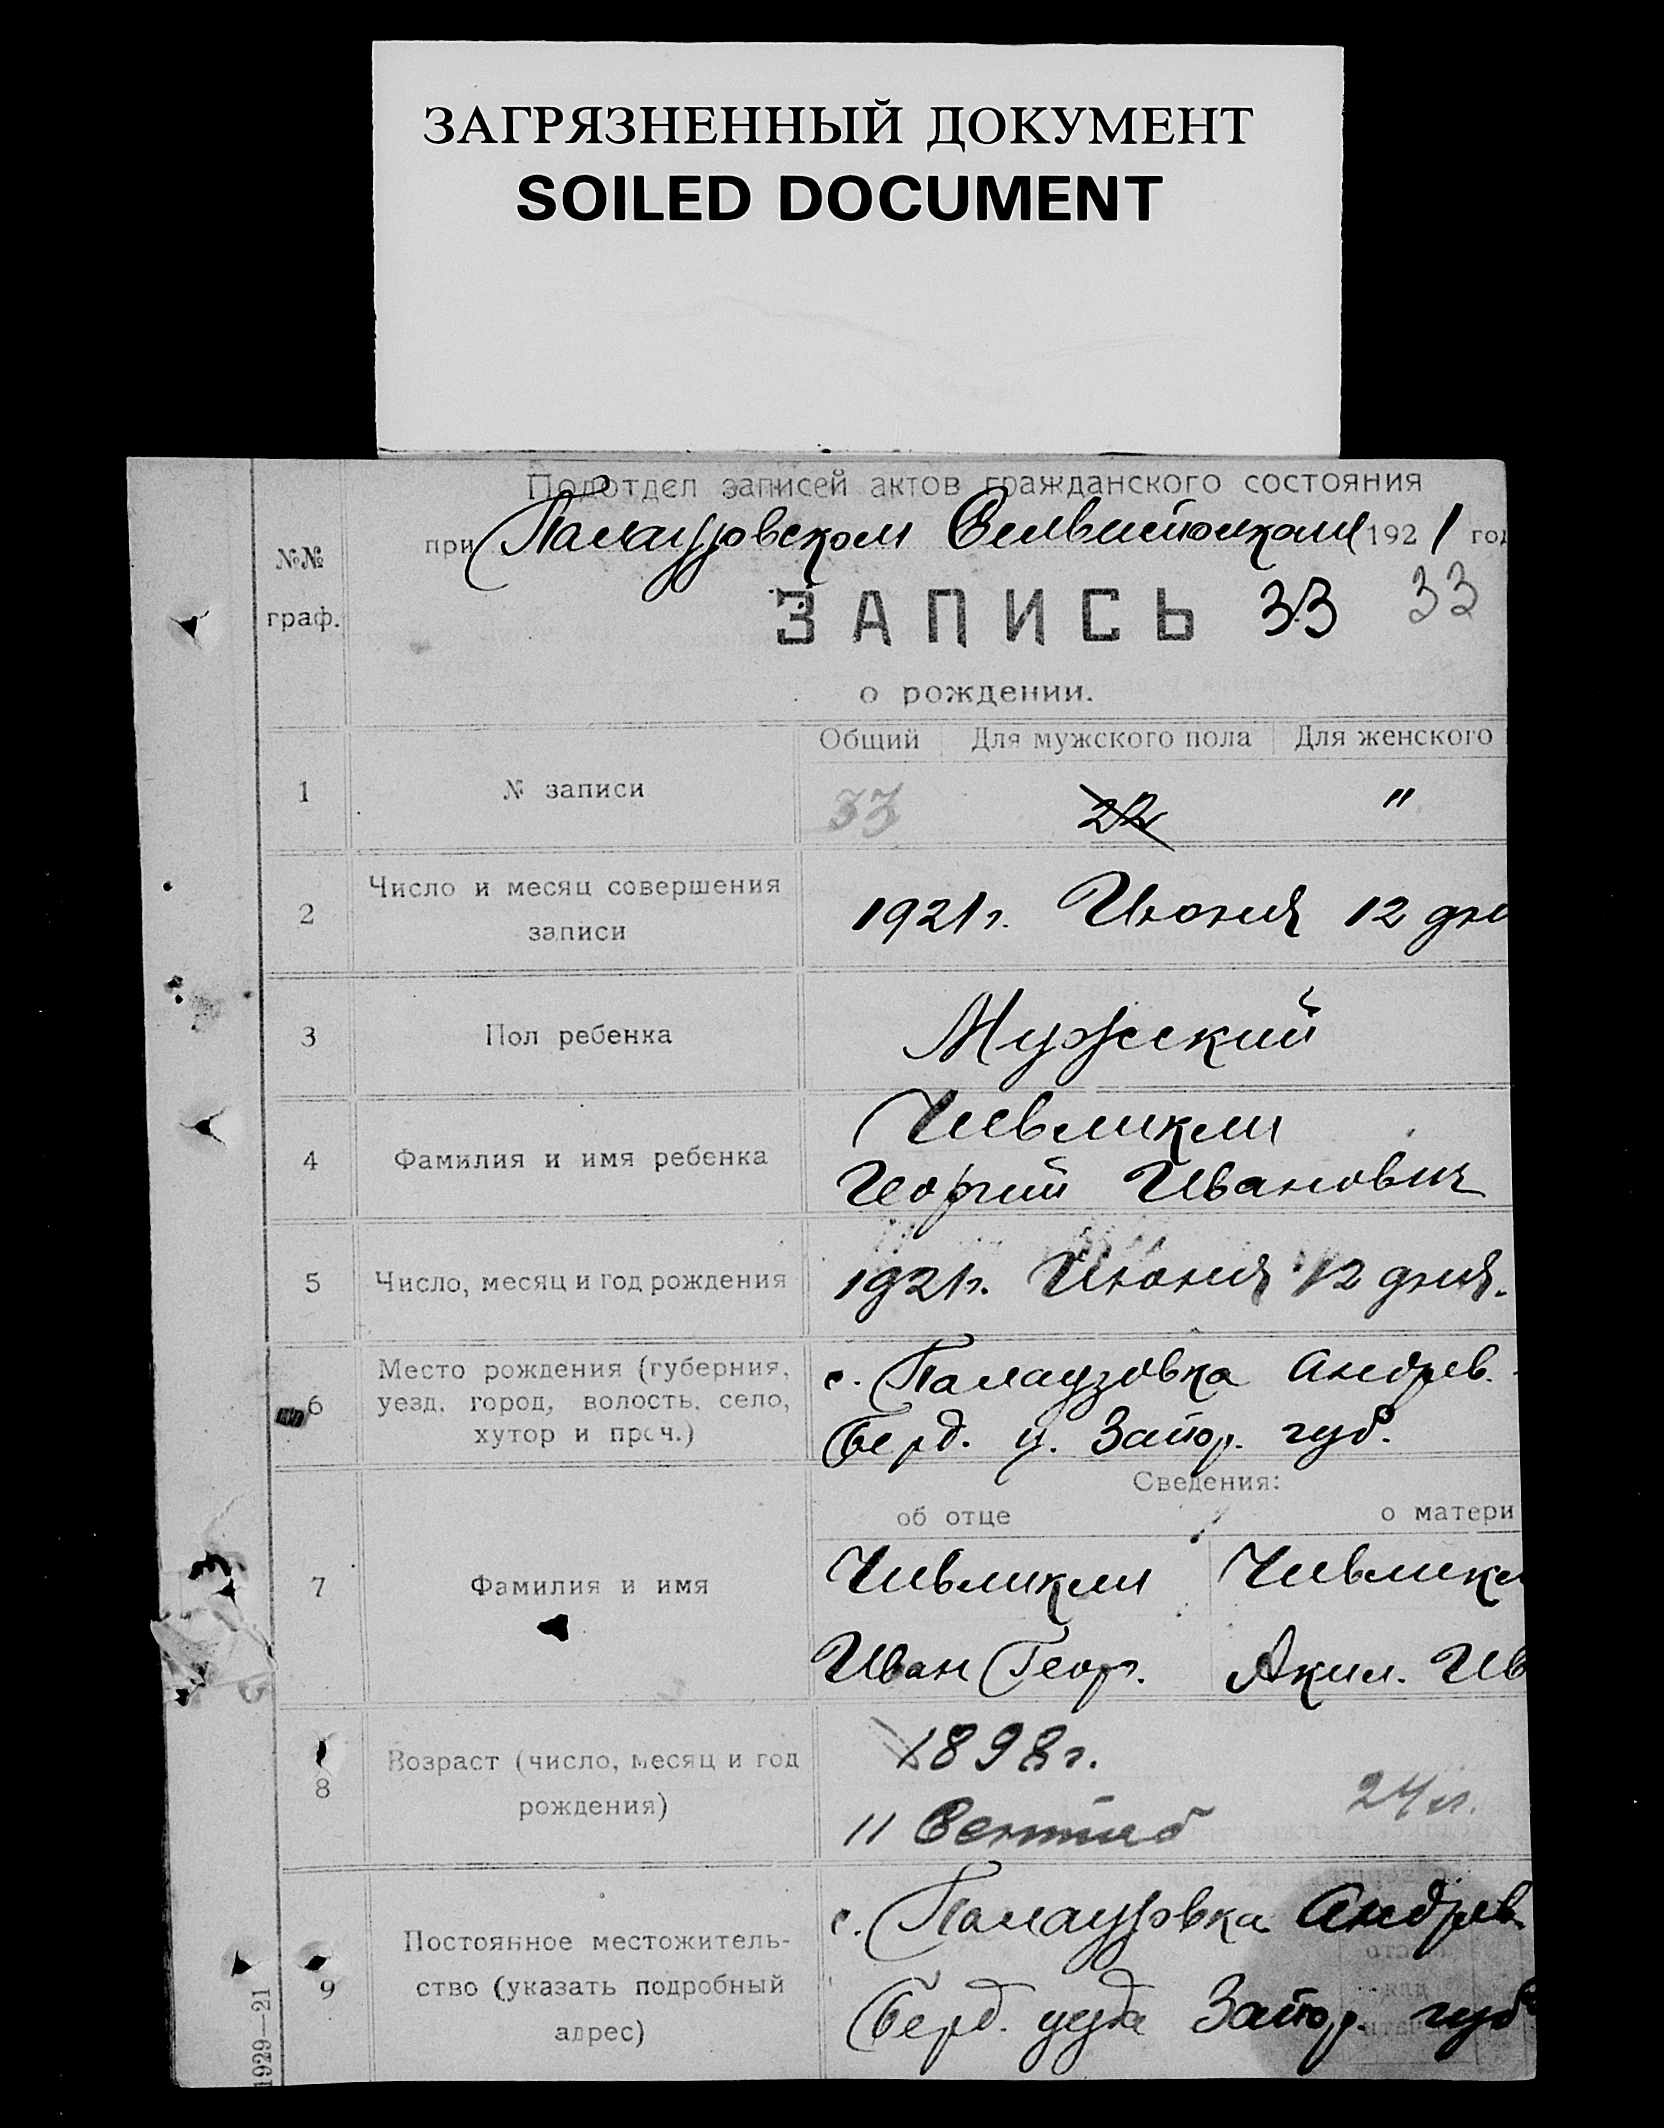 ЗАГРЯЗНЕННЫЙ ДОКУМЕНТ
SOILED DOCUMENT
Подотдел записей актов гражданского состояния
при Палаузовском 1921 год
№№ граф.
ЗАПИСЬ 33 33
о рождении.
Общий Для мужского пола Для женского
1 № записи 33 22 "
2 Число и месяц совершения
записи
1921 г. Июня 12 дня
3 Пол ребенка Мужский
4 Фамилия и имя ребенка
Чивликли
Георгий Иванович
5 Число, месяц и год рождения 1921 г. Июня 12 дня.
6 Место рождения (губерния,
уезд, город, волость, село,
хутор и проч.)
с. Палаузовка Андрев.
Берд. у. Запор. губ.
Сведения:
об отце о матери
7 Фамилия и имя
Чивликли Чивликл
Иван Геор. Акил. Ив
8 Возраст (число, месяц и год
рождения)
1898 г.
11 24 л.
9 Постоянное местожитель-
ство (указать подробный
адрес)
с. Палаузовка Андрев.
Берд. уезда Запор. губ
1929—21